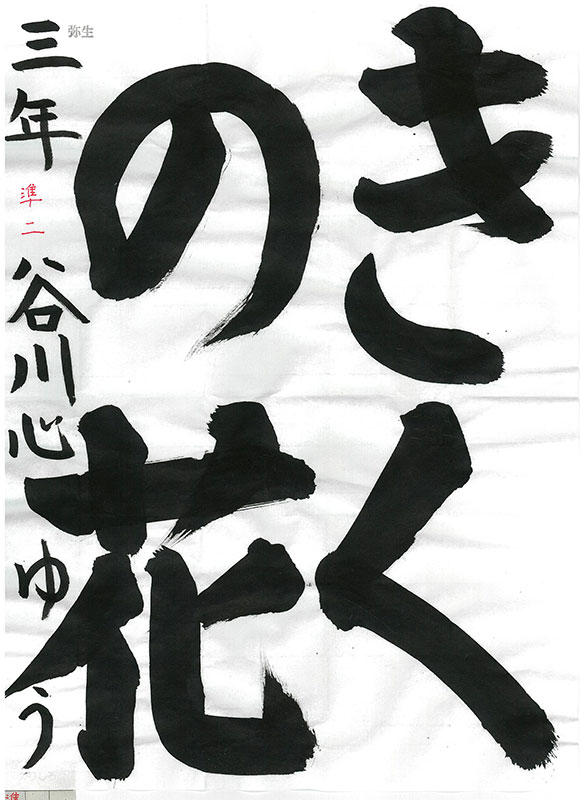 きく
の花
弥生
三年 準二 谷川心ゆう
準